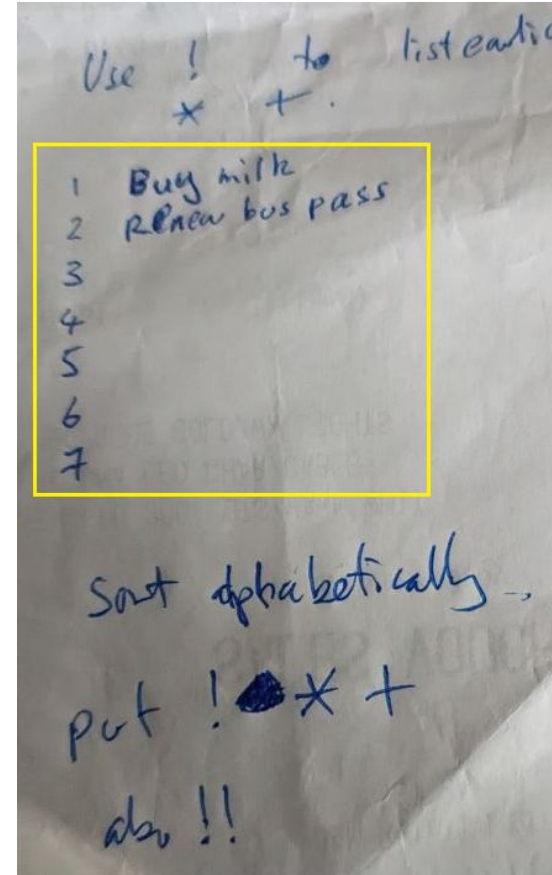 Use ! to list
* + .
1 Buy milk
2 Renew bus pass
3
4
5
6
7
Sort alphabetically
put ! * +
also !!